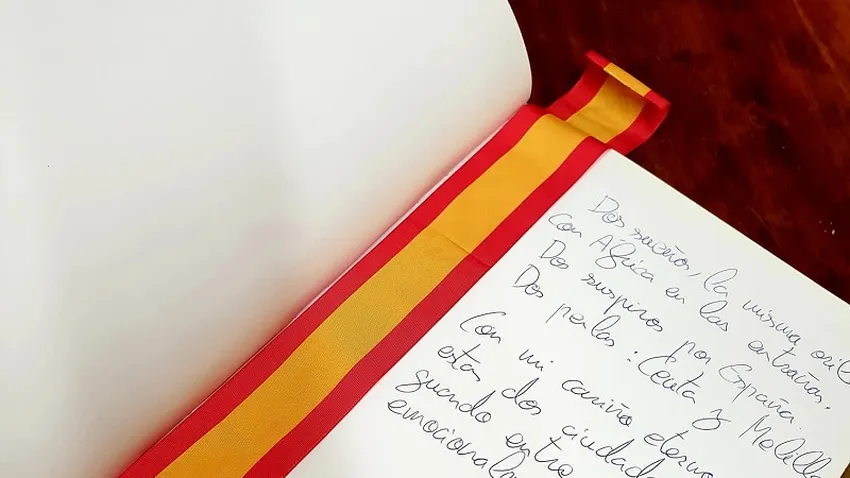 Dos sueños, la misma
con África en las entrañas.
Dos suspiros por España.
Dos perlas: Ceuta y Melilla
Con mi cariño eterno
estas dos ciudad
guando entro
emociona